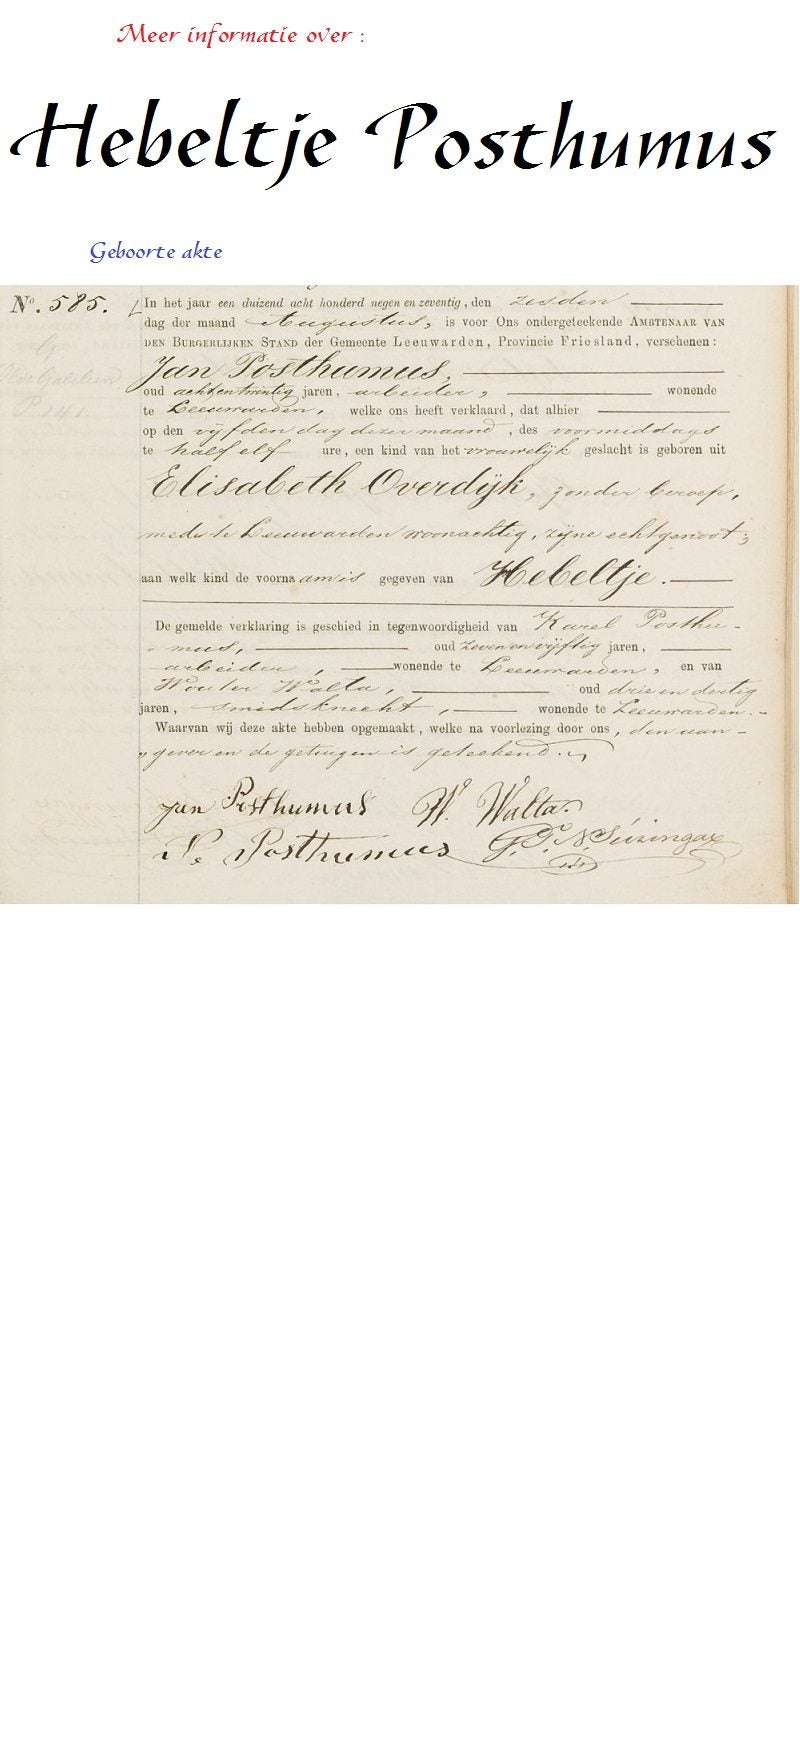 Meer informatie over :
Hebeltje Posthumus
Geboorte akte
No. 585.
In het jaar een duizend acht honderd negen en zeventig, den zesden
dag der maand Augustus, is voor Ons ondergeteekende AMBTENAAR VAN
DEN BURGERLIJKEN STAND der Gemeente Leeuwarden, Provincie Friesland, verschenen:
Jan Posthumus,
oud achtentwintig jaren, arbeider, wonende
te Leeuwarden, welke ons heeft verklaard, dat alhier
op den vijfden dag dezer maand, des voormiddags
te half elf ure, een kind van het vrouwelijk geslacht is geboren uit
Elisabeth Overdijk, zonder beroep,
mede te Leeuwarden woonachtig, zijne echtgenoot;
aan welk kind de voornaam is gegeven van Hebeltje.
De gemelde verklaring is geschied in tegenwoordigheid van Karel Posthu-
mus, oud zevenenvijftig jaren,
arbeider, wonende te Leeuwarden, en van
Wouter Walta, oud drieendertig
jaren, smidsknecht, wonende te Leeuwarden.
Waarvan wij deze akte hebben opgemaakt, welke na voorlezing door ons, den aan-
gever en de getuigen is geteekend.
Jan Posthumus W. Walta.
Posthumus